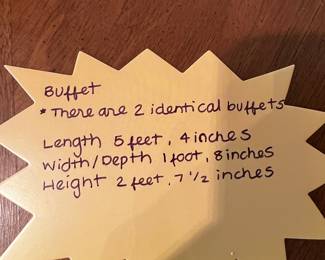 Buffet
* There are 2 identical buffets
Length 5 feet, 4 inches
Width/Depth 1 foot, 8 inches
Height 2 feet, 7 1/2 inches